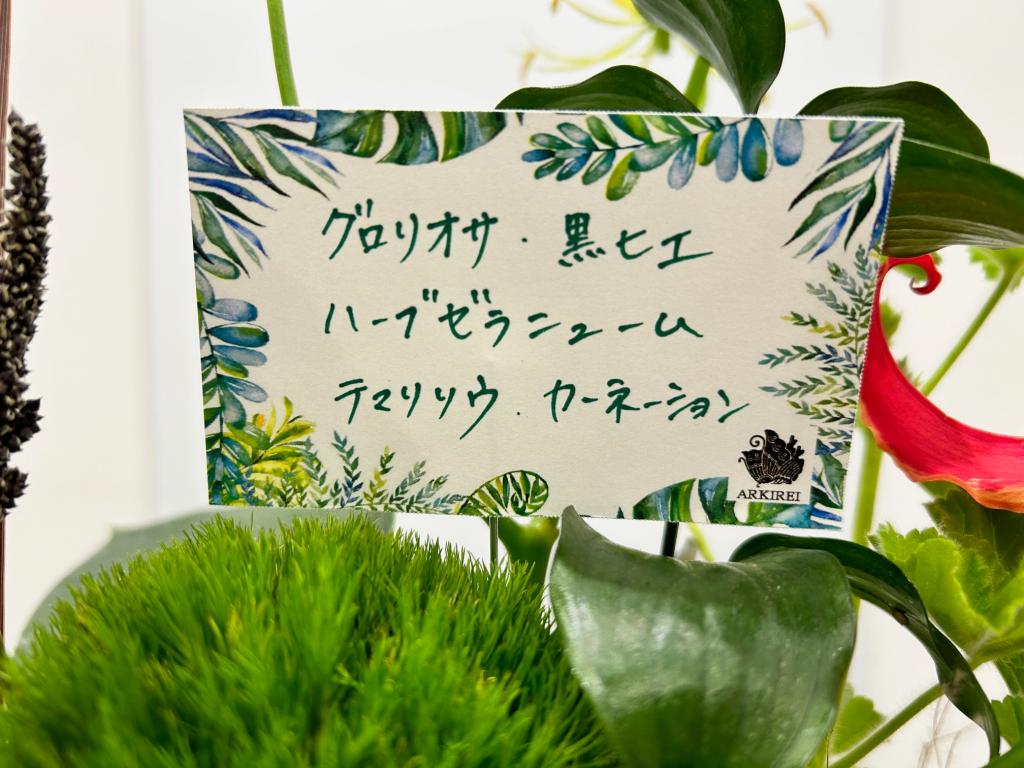 グロリオサ・黒ヒエ
ハーブゼラニューム
テマリソウ・カーネーション
ARKIREI